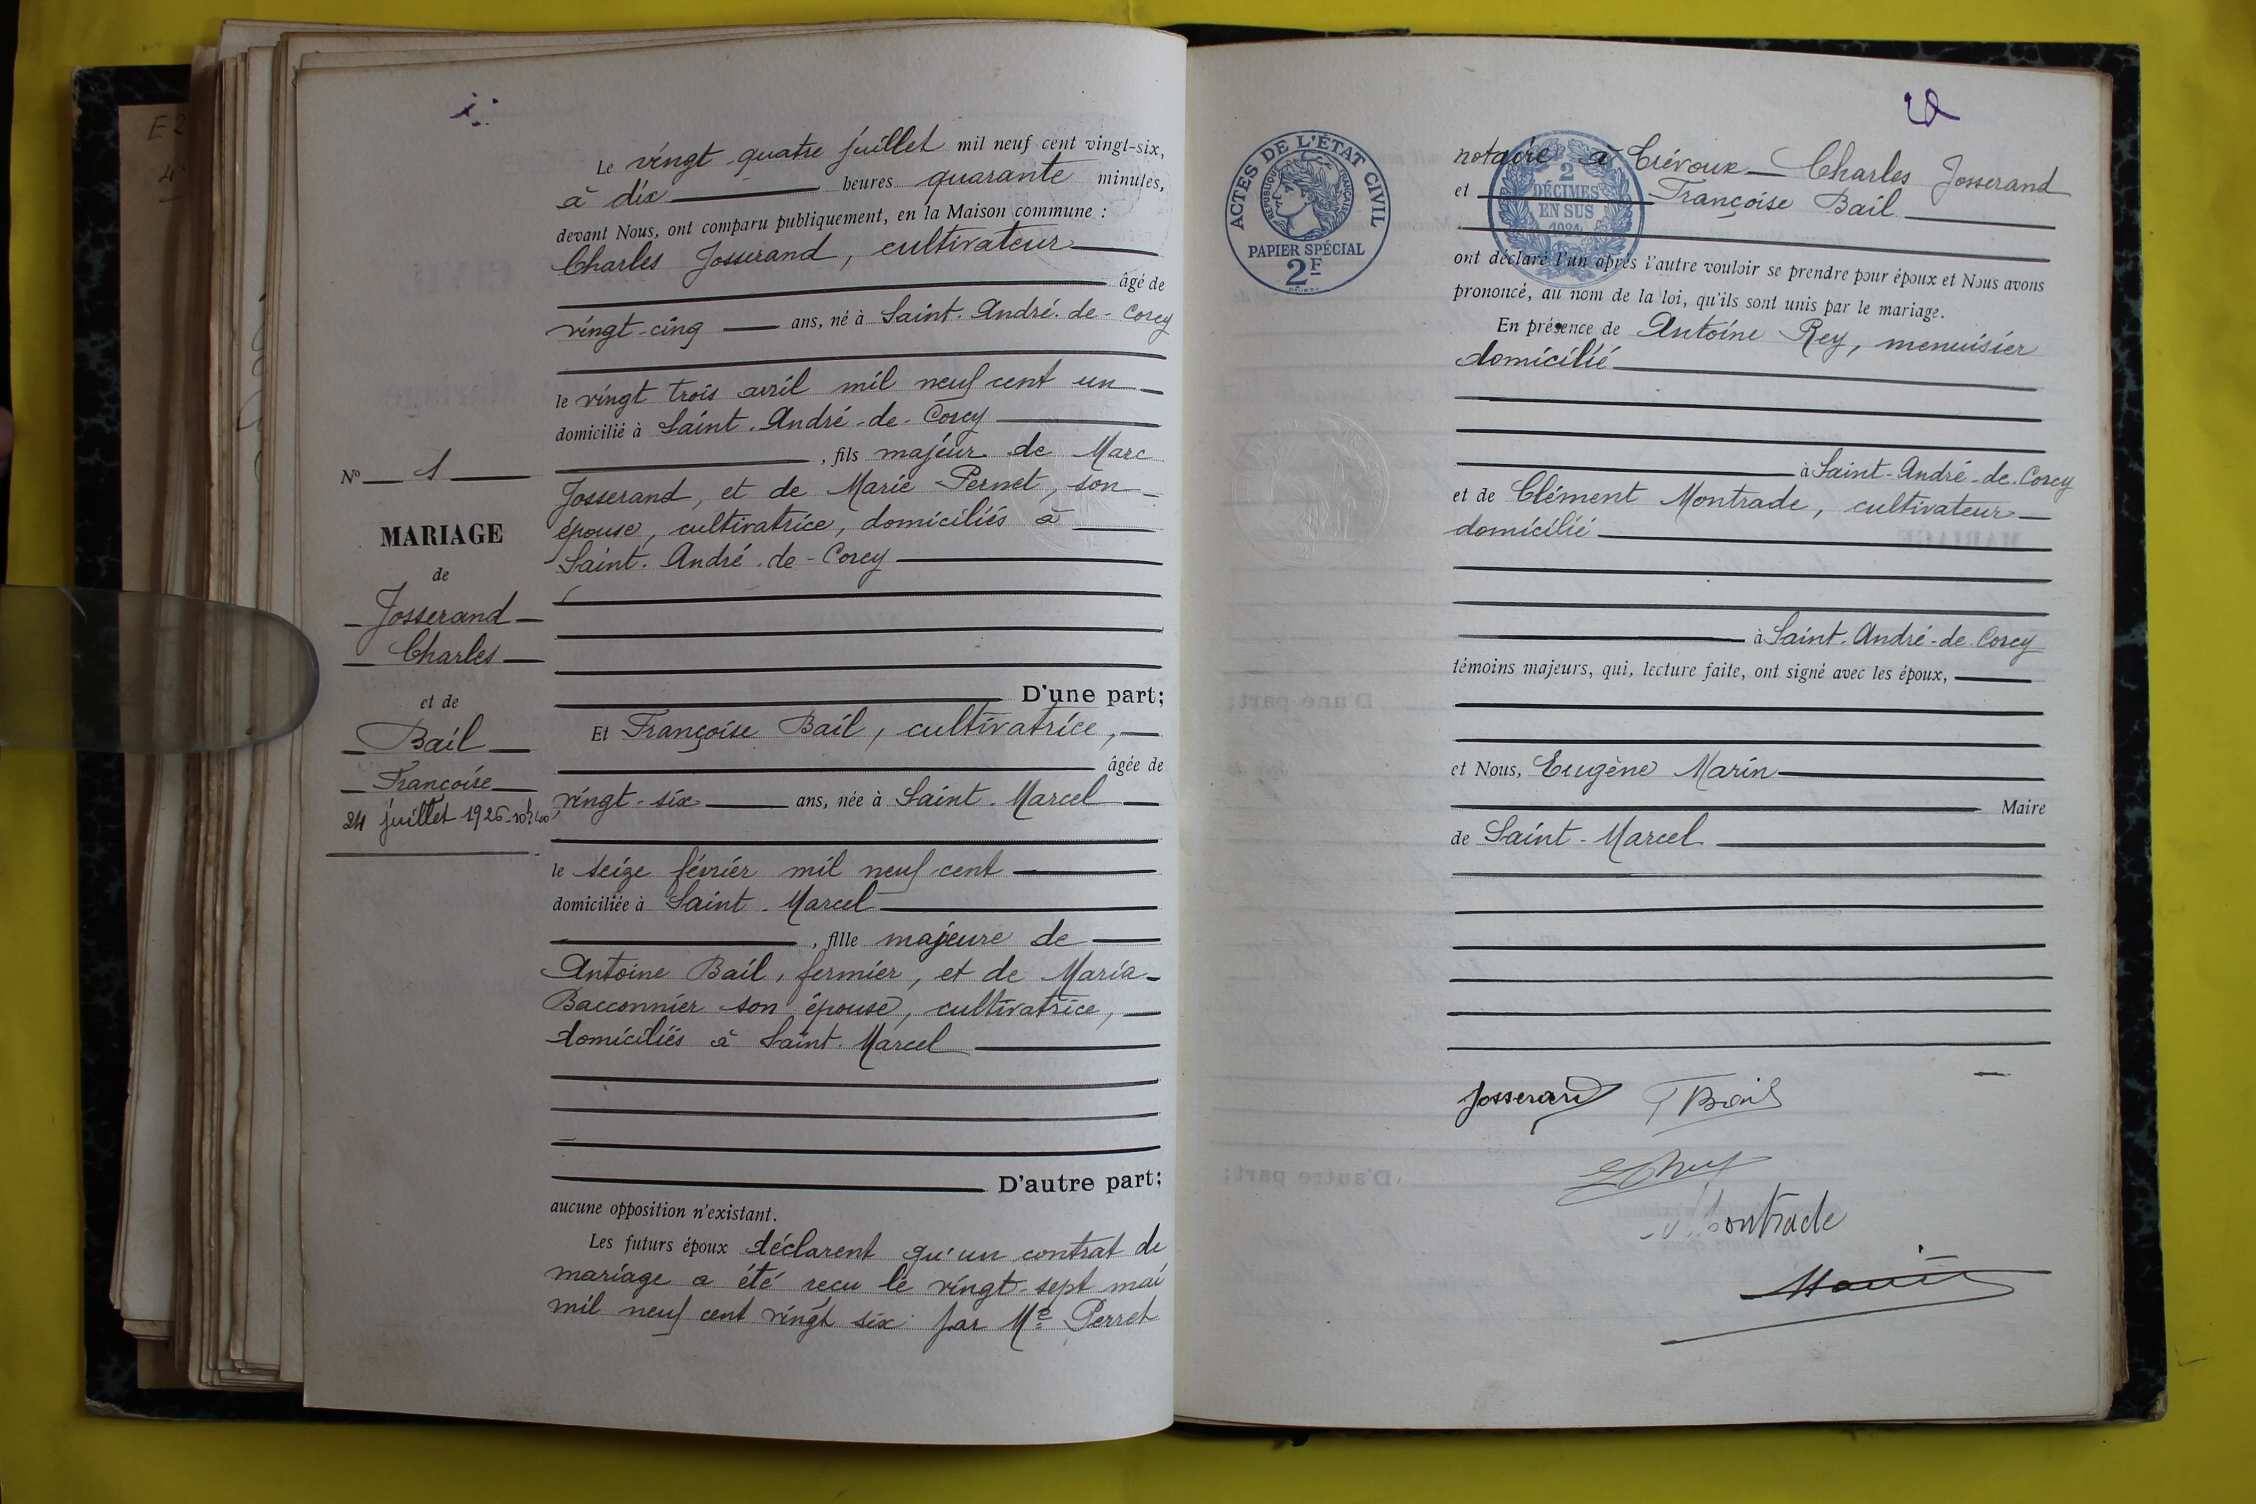 Le vingt quatre juillet mil neuf cent vingt-six,
à dix heures quarante minutes,
devant Nous, ont comparu publiquement, en la Maison commune :
Charles Josserand, cultivateur
âgé de
vingt-cinq ans, né à Saint-André-de-Corcy
le vingt trois avril mil neuf cent un
domicilié à Saint-André-de-Corcy
, fils majeur de Marc
Josserand, et de Marie Pernet, son
épouse, cultivatrice, domiciliés à
Saint-André-de-Corcy
D'une part;
Et Françoise Bail, cultivatrice,
âgée de
vingt-six ans, née à Saint-Marcel
le seize février mil neuf cent
domiciliée à Saint-Marcel
, fille majeure de
Antoine Bail, fermier, et de Maria
Bacconnier son épouse, cultivatrice,
domiciliés à Saint-Marcel
D'autre part;
aucune opposition n'existant.
Les futurs époux déclarent qu'un contrat de
mariage a été reçu le vingt-sept mai
mil neuf cent vingt six par Me Perret
No 1
MARIAGE
de
Josserand
Charles
et de
Bail
Françoise
24 juillet 1926-10h40
ACTES DE L'ÉTAT CIVIL
RÉPUBLIQUE FRANÇAISE
PAPIER SPÉCIAL
2F
2
DÉCIMES
EN SUS
1924
notaire à Trévoux Charles Josserand
et Françoise Bail
ont déclaré l'un après l'autre vouloir se prendre pour époux et Nous avons
prononcé, au nom de la loi, qu'ils sont unis par le mariage.
En présence de Antoine Rey, menuisier
domicilié
à Saint-André-de-Corcy
et de Clément Montrade, cultivateur
domicilié
à Saint-André-de-Corcy
témoins majeurs, qui, lecture faite, ont signé avec les époux,
et Nous, Eugène Marin
Maire
de Saint-Marcel
Josserand F Bail
Rey
Montrade
Marin